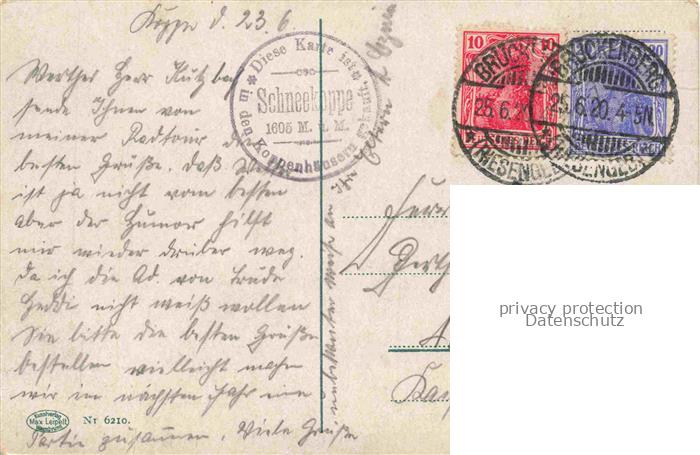 Koppe d. 23.6.
Werther Herr
sende Ihnen von
meiner Radtour die
besten Grüße. daß Wetter
ist ja nicht vom besten
aber der Humor hilft
mir wieder drüber weg.
Da ich die Ad. von Trude
Heddi nicht weiß wollen
Sie bitte die besten Grüße
bestellen vielleicht machen
wir im nächsten Jahr eine
Partie zusammen. Viele Grüße
unbekannter Weise an
Ihr Eltern
Diese Karte ist
in den Koppenhäusern
Schneekoppe
1605 M. ü. M.
10
BRÜCKENBERG
25.6.20. 4-5N
RIESENGEB
Herr
Kunstverlag
Max Leipelt
Nr 6210.
privacy protection
Datenschutz